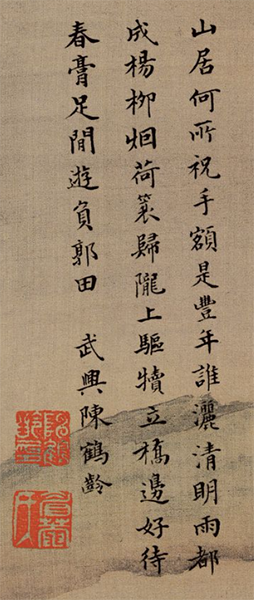 山居何所祝手額是豐年誰灑清明雨都
成楊栁烟荷蓑歸隴上驅犢立橋邊好待
春膏足間遊負郭田 武興陳鶴齡